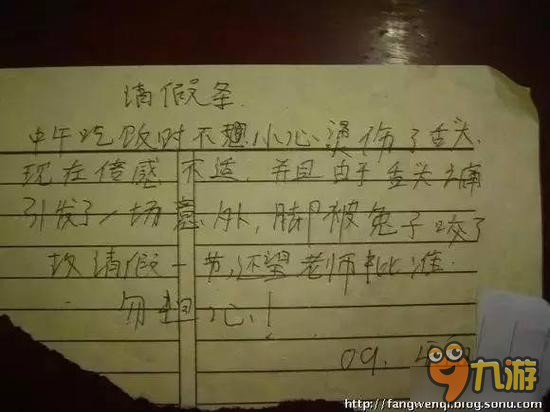 请假条
中午吃饭时不小心烫伤了舌头.
现在倍感不适,并且由于舌头痛
引发了一场意外,脚被兔子咬了
故请假一节,还望老师批准.
勿担心!
09.
九游
http://fangwenqi.blog.sohu.com